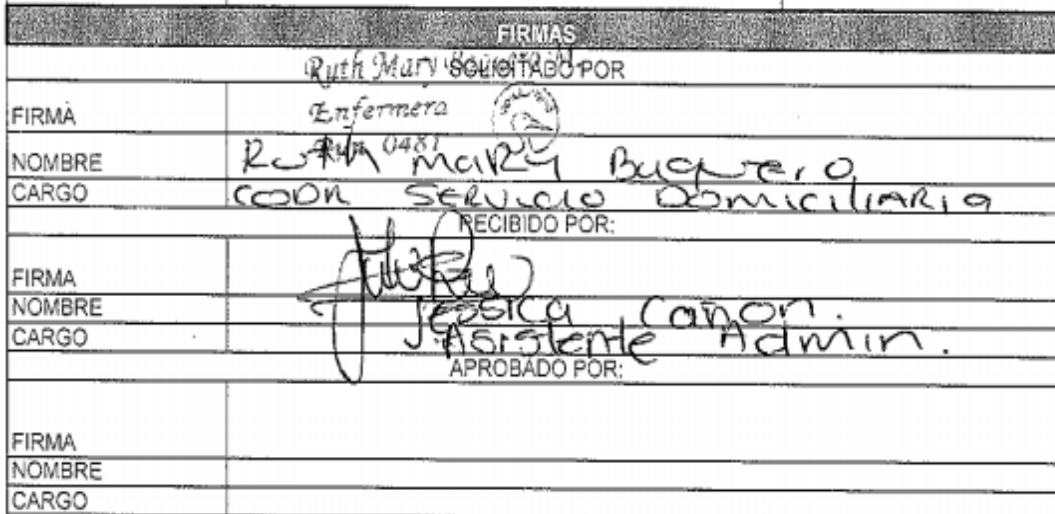 FIRMAS
Ruth Mary
SOLICITADO POR
FIRMA
Enfermera
0481
NOMBRE Ruth Mary Baquero
CARGO COOR SERVICIO DOMICILIARIA
RECIBIDO POR:
FIRMA
NOMBRE Jessica Cañon.
CARGO Asistente Admin.
APROBADO POR:
FIRMA
NOMBRE
CARGO